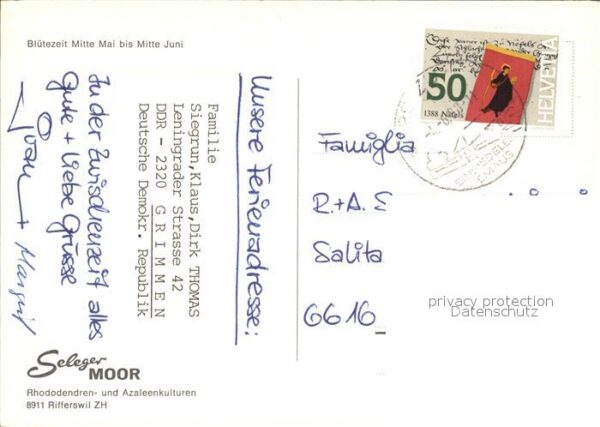 Blütezeit Mitte Mai bis Mitte Juni
Unsere Ferienadresse:
Familie
Siegrun,Klaus,Dirk THOMAS
Leningrader Strasse 42
DDR - 2320 G R I M M E N
Deutsche Demokr. Republik
In der Zwischenzeit alles
Gute + liebe Grüsse
+ Margrit
Seleger
MOOR
Rhododendren- und Azaleenkulturen
8911 Rifferswil ZH
50
1388 Näfels
HELVETIA
Famiglia
R.+A. E
Salita
6616
privacy protection
Datenschutz